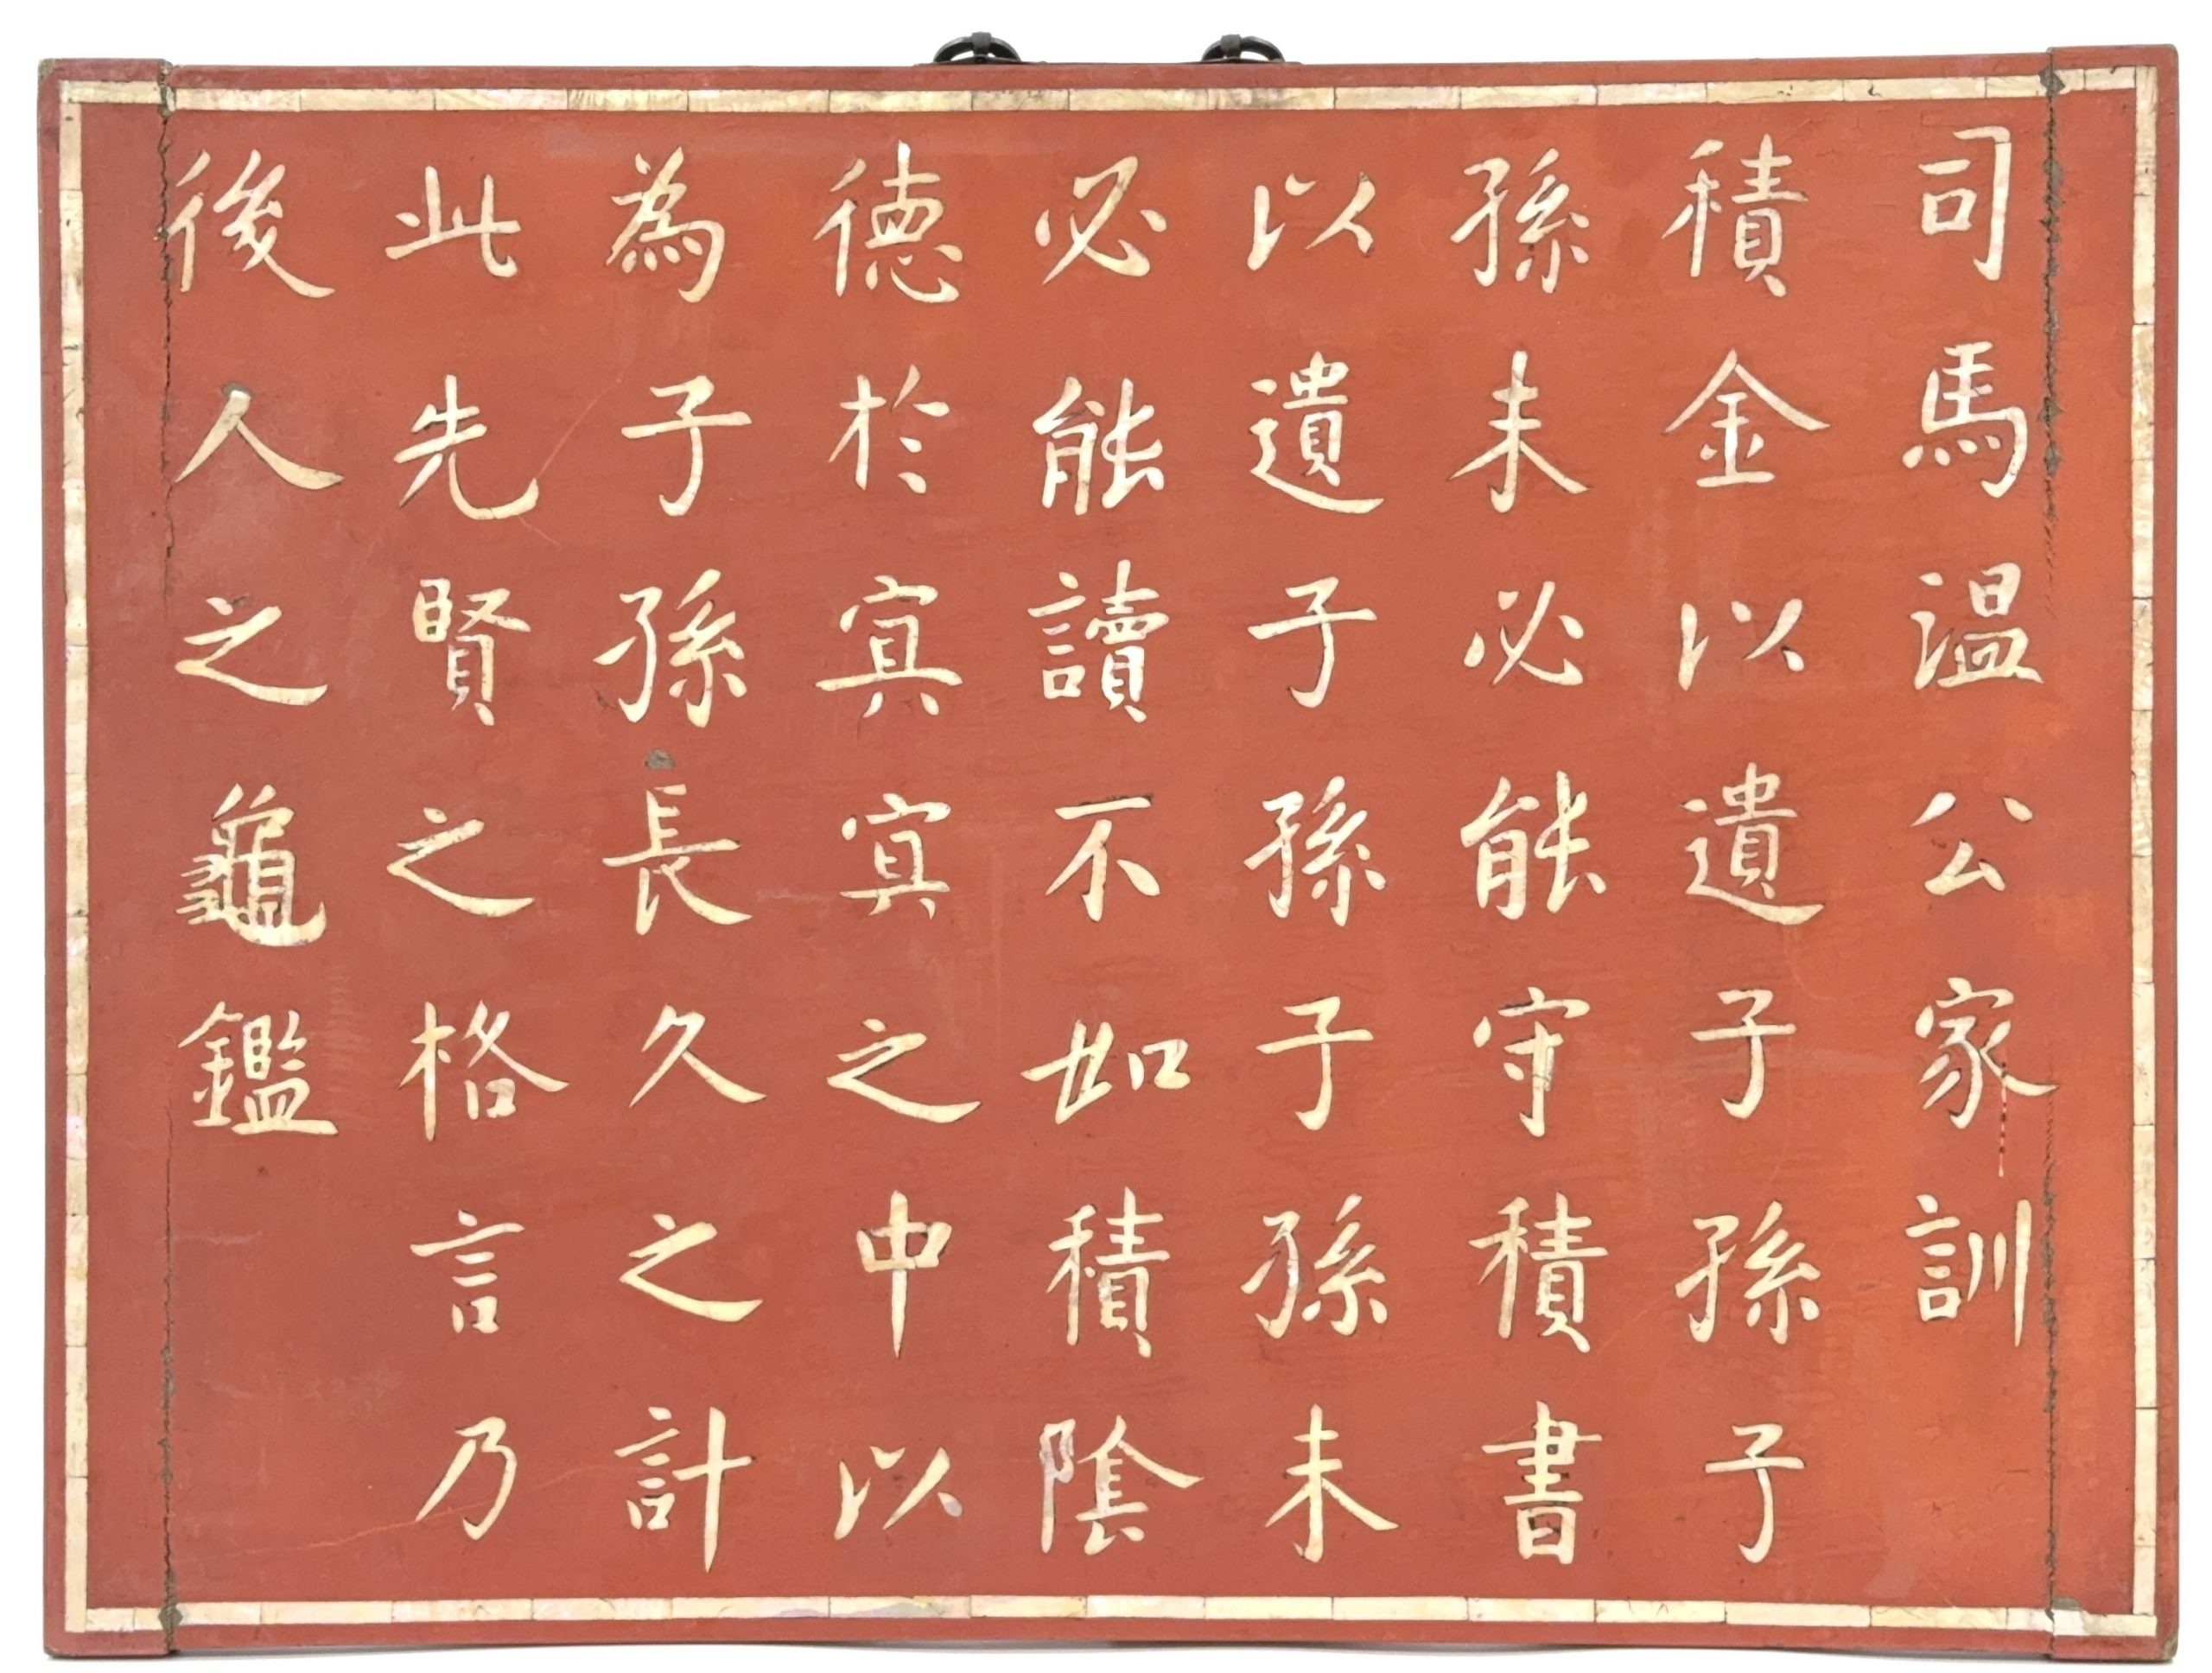 司馬温公家訓
積金以遺子孫子
孫未必能守積書
以遺子孫子孫未
必能讀不如積陰
德於寘寘之中以
為子孫長久之計
此先賢之格言乃
後人之龜鑑